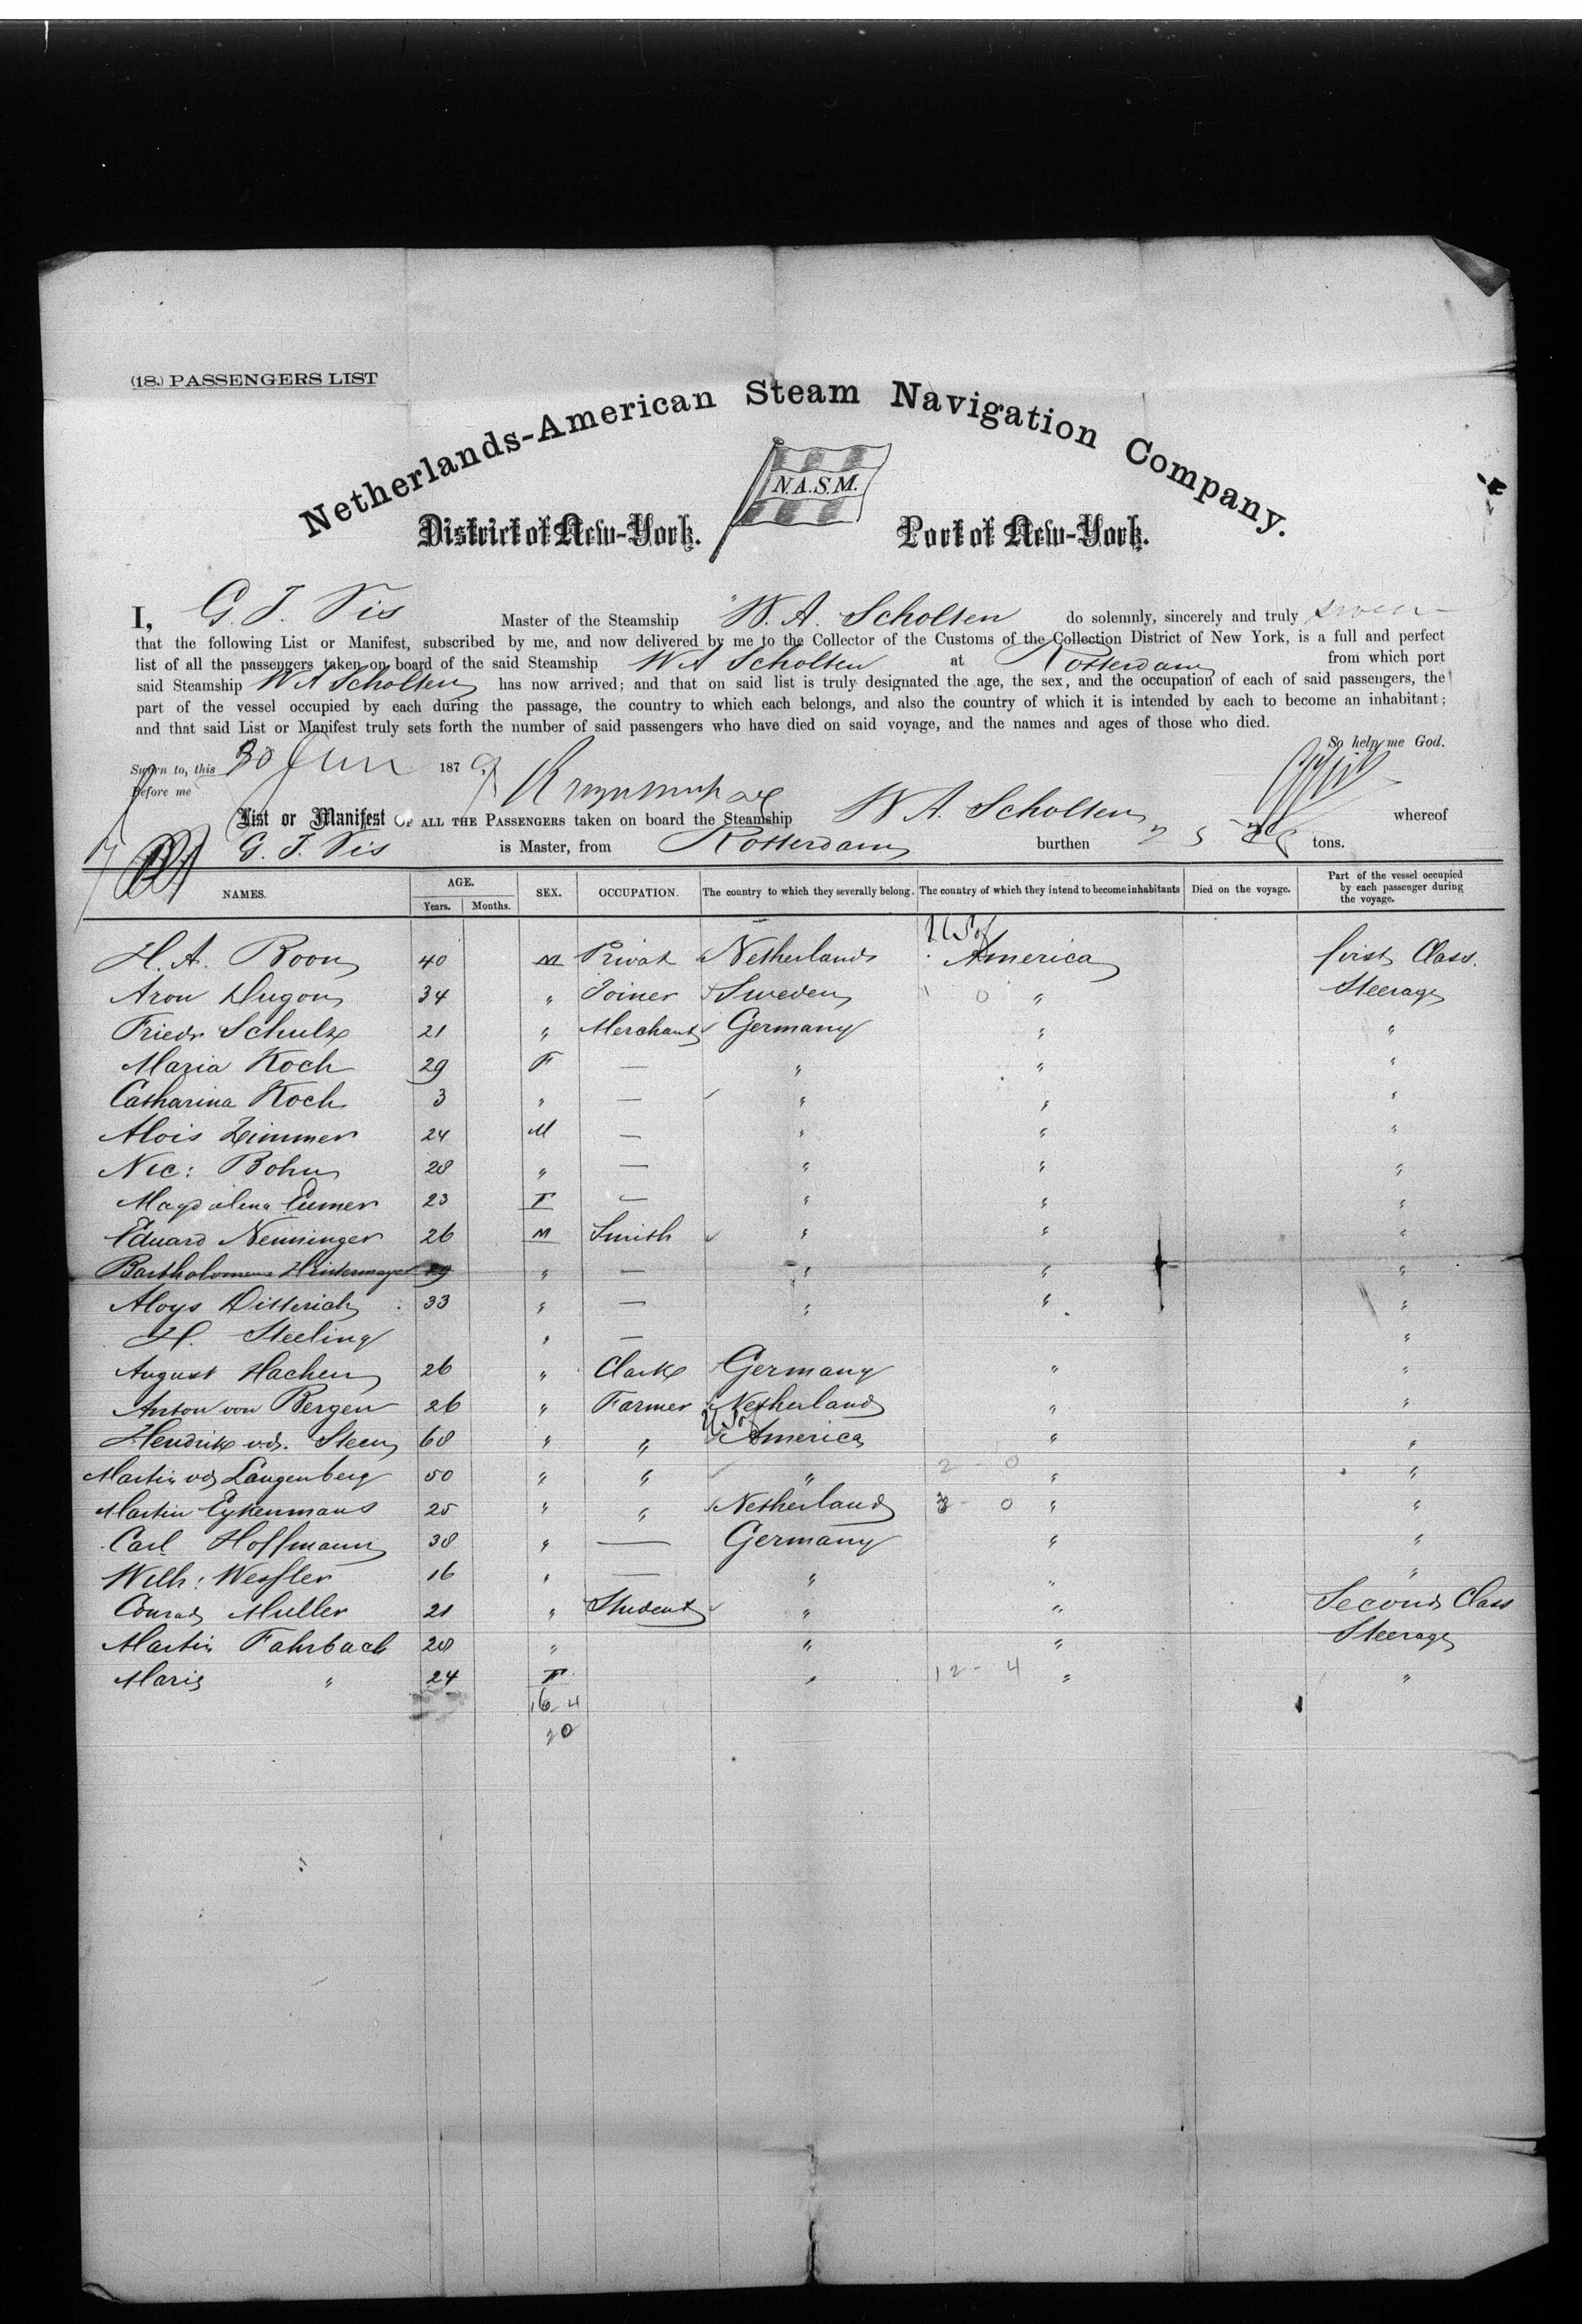 (18.) PASSENGERS LIST
Netherlands-American Steam Navigation Company.
N.A.S.M.
District of New-York. Port of New-York.
I, G. J. Vis Master of the Steamship W. A. Scholten do solemnly, sincerely and truly swear
that the following List or Manifest, subscribed by me, and now delivered by me to the Collector of the Customs of the Collection District of New York, is a full and perfect
list of all the passengers taken on board of the said Steamship W A Scholten at Rotterdam from which port
said Steamship W A Scholten has now arrived; and that on said list is truly designated the age, the sex, and the occupation of each of said passengers, the
part of the vessel occupied by each during the passage, the country to which each belongs, and also the country of which it is intended by each to become an inhabitant;
and that said List or Manifest truly sets forth the number of said passengers who have died on said voyage, and the names and ages of those who died.
So help me God.
Sworn to, this 30 Jun 1879
Before me
List or Manifest OF ALL THE PASSENGERS taken on board the Steamship W A. Scholten whereof
G. J. Vis is Master, from Rotterdam burthen tons.
NAMES. AGE. Years. Months. SEX. OCCUPATION. The country to which they severally belong. The country of which they intend to become inhabitants Died on the voyage. Part of the vessel occupied by each passenger during the voyage.
H. A. Boon 40 M Privat Netherlands US of America first Class.
Aron Hugon 34 " Joiner Sweden 1 0 " Steerage
Friedr Schulze 21 " Merchant Germany " "
Maria Koch 29 F — " " "
Catharina Koch 3 " — " " "
Alois Zimmer 24 M — " " "
Nic: Bohn 28 " — " " "
Magdalena Eumer 23 F — " " "
Eduard Nenninger 26 M Smith " " "
Bartholomeus Hintermayer 29 " — " " "
Aloys Ditterich 33 " — " " "
H. Steeling " — "
August Hachen 26 " Clarke Germany " "
Anton von Bergen 26 " Farmer Netherland " "
Hendrik vd. Steen 68 " " US of America " "
Martin vd Langenberg 50 " " " 2 - 0 " "
Martin Eykenmans 25 " " Netherland 3 - 0 " "
Carl Hoffmann 38 " — Germany " "
Wilh: Wessler 16 " — " " "
Conrad Muller 21 " Student " " Second Class
Martin Fahrbach 28 " " " Steerage
Maria " 24 F " 12 - 4 " "
16 - 4
20